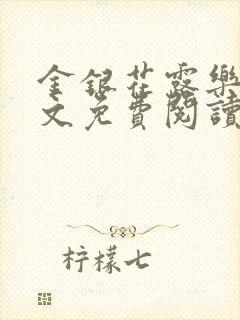 金银花露樂
文免費閱讀
柠檬七